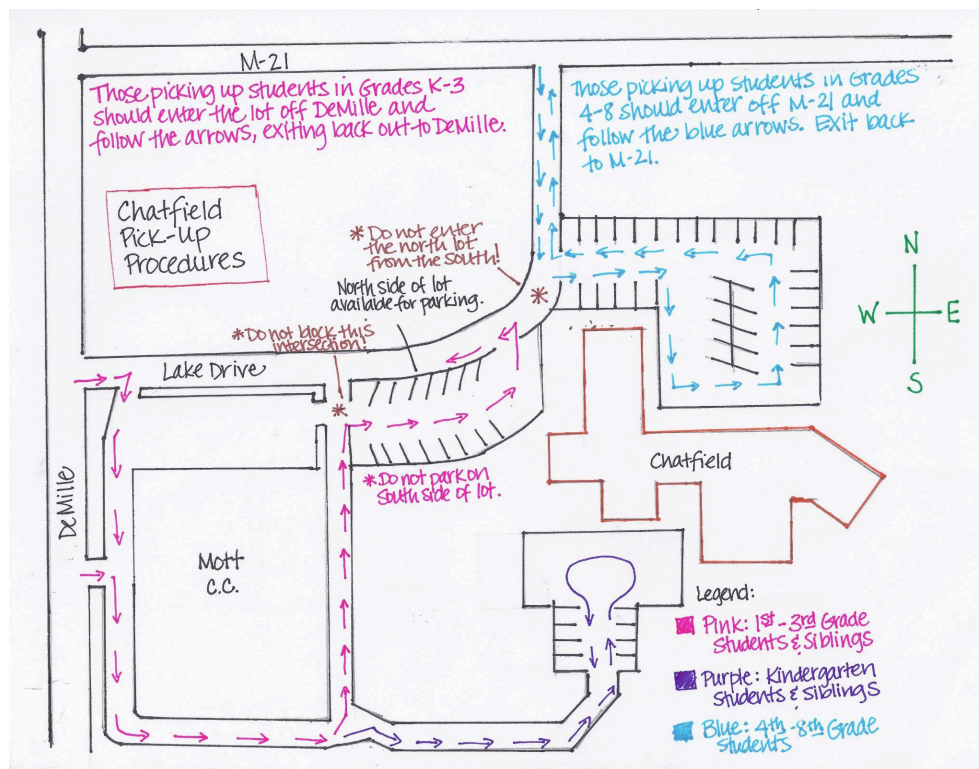 M-21
Those picking up students in Grades K-3
should enter the lot off DeMille and
follow the arrows, exiting back out to DeMille.
Those picking up students in Grades
4-8 should enter off M-21 and
follow the blue arrows. Exit back
to M-21.
Chatfield
Pick-Up
Procedures
* Do not enter
the north lot
from the south!
North side of lot
available for parking.
* Do not block this
intersection!
*
*
N
W
E
S
Lake Drive
DeMille
Chatfield
* Do not park on
South side of lot.
Mott
C.C.
Legend:
Pink: 1st-3rd Grade
Students & Siblings
Purple: Kindergarten
Students & Siblings
Blue: 4th-8th Grade
Students